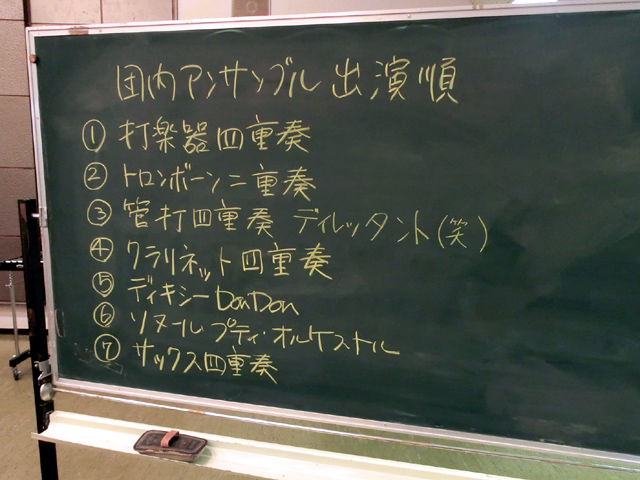 団内アンサンブル出演順
① 打楽器四重奏
② トロンボーン二重奏
③ 管打四重奏 ディレッタント(笑)
④ クラリネット四重奏
⑤ ディキシーDonDon
⑥ ソヌール プティ・オルケストル
⑦ サックス四重奏